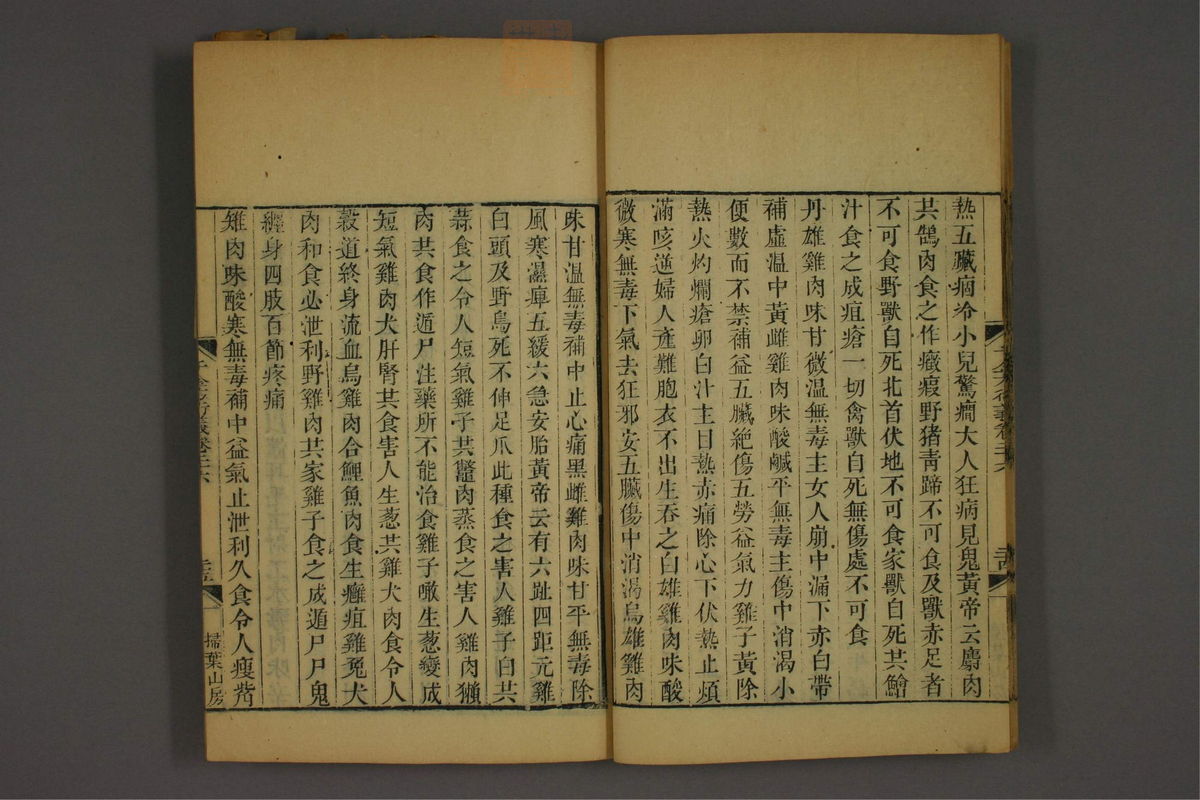 熱五臟痼冷小兒驚癇大人狂病見鬼黃帝云麝肉
共鵠肉食之作癥瘕野猪青蹄不可食及獸赤足者
不可食野獸自死北首伏地不可食家獸自死共鱠
汁食之成疽瘡一切禽獸自死無傷處不可食
丹雄雞肉味甘微温無毒主女人崩中漏下赤白帶
補虛温中黃雌雞肉味酸鹹平無毒主傷中消渴小
便數而不禁補益五臟絕傷五勞益氣力雞子黃除
熱火灼爛瘡卵白汁主目熱赤痛除心下伏熱止煩
滿咳逆婦人產難胞衣不出生吞之白雄雞肉味酸
微寒無毒下氣去狂邪安五臟傷中消渴烏雄雞肉
味甘温無毒補中止心痛黑雌雞肉味甘平無毒除
風寒濕痺五緩六急安胎黃帝云有六趾四距元雞
白頭及野鳥死不伸足爪此種食之害人雞子白共
蒜食之令人短氣雞子共鼈肉蒸食之害人雞肉獺
肉共食作遁尸注藥所不能治食雞子噉生葱變成
短氣雞肉犬肝腎共食害人生葱共雞犬肉食令人
穀道終身流血烏雞肉合鯉魚肉食生癰疽雞兔犬
肉和食必泄利野雞肉共家雞子食之成遁尸尸鬼
纏身四肢百節疼痛
雉肉味酸寒無毒補中益氣止泄利久食令人瘦嵴
千金方衍義卷二十六
掃葉山房